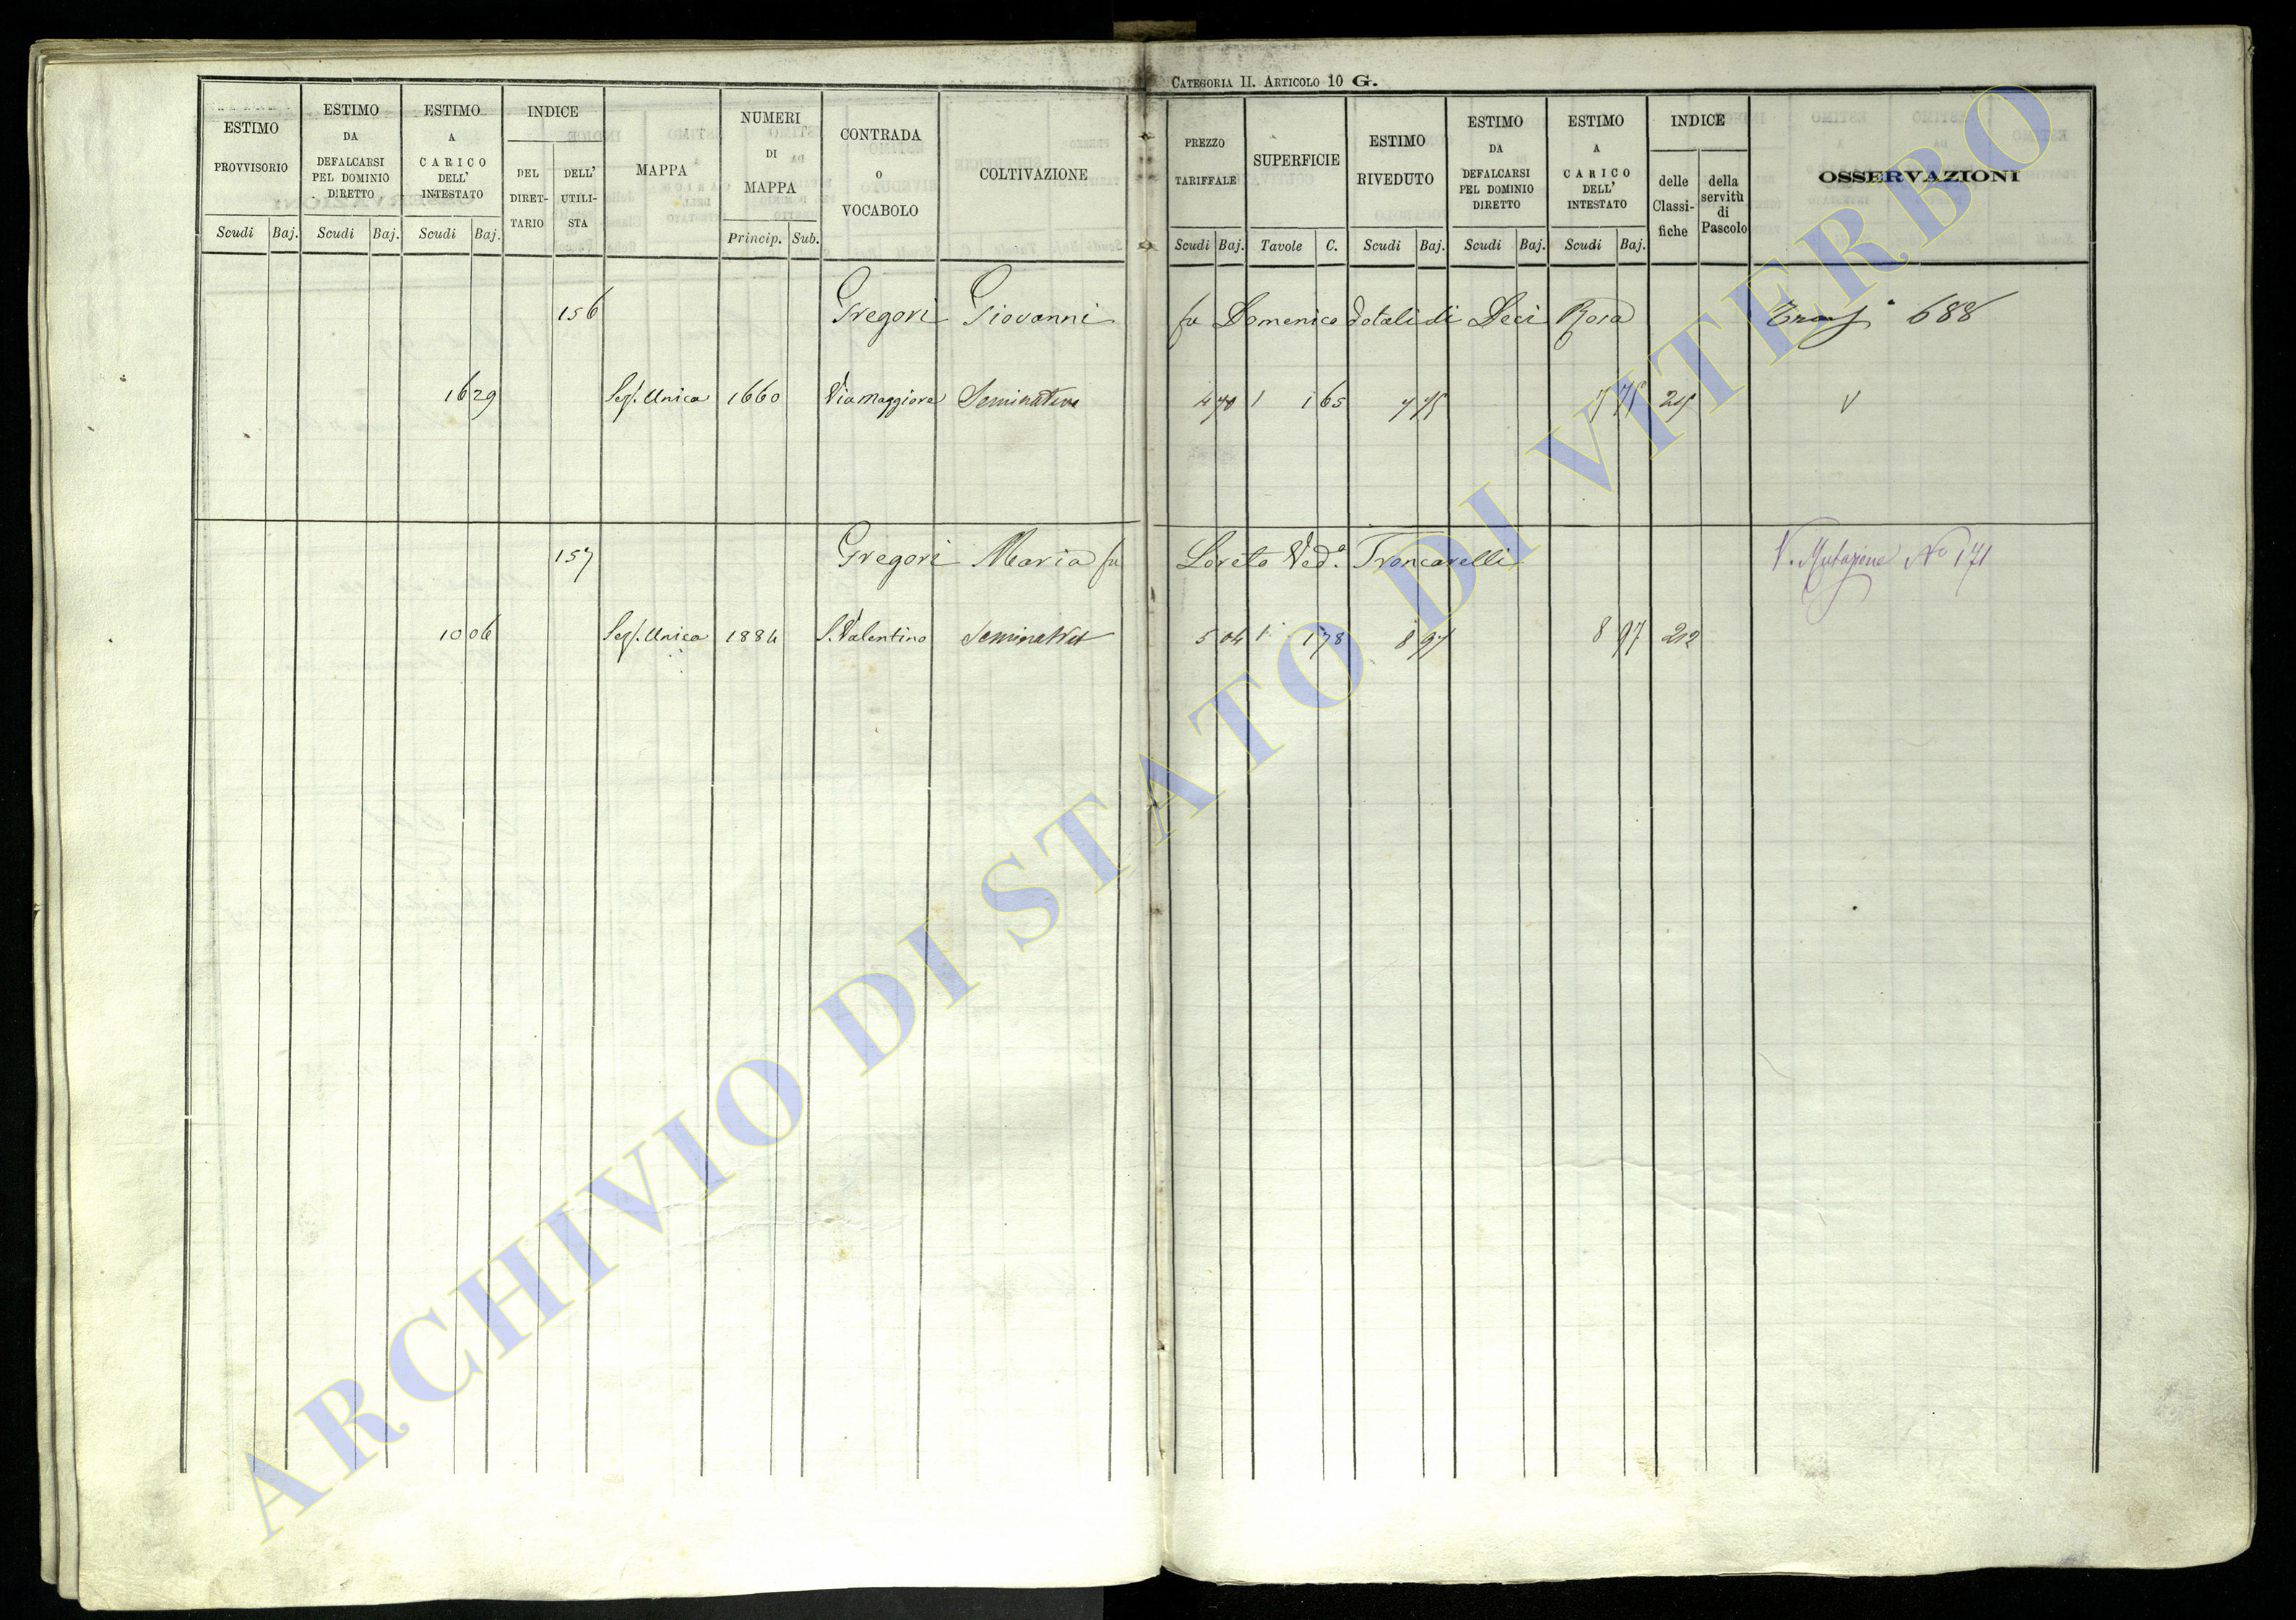 CATEGORIA II. ARTICOLO 10 G.
ESTIMO PROVVISORIO Scudi Baj.
ESTIMO DA DEFALCARSI PEL DOMINIO DIRETTO Scudi Baj.
ESTIMO A CARICO DELL' INTESTATO Scudi Baj.
INDICE DEL DIRET-TARIO DELL' UTILI-STA
MAPPA
NUMERI DI MAPPA Princip. Sub.
CONTRADA O VOCABOLO
COLTIVAZIONE
PREZZO TARIFFALE Scudi Baj.
SUPERFICIE Tavole C.
ESTIMO RIVEDUTO Scudi Baj.
ESTIMO DA DEFALCARSI PEL DOMINIO DIRETTO Scudi Baj.
ESTIMO A CARICO DELL' INTESTATO Scudi Baj.
INDICE delle Classi-fiche della servitù di Pascolo
OSSERVAZIONI
156 Gregori Giovanni fu Domenico dotali di Deci Rosa 688
16 29 Sez. Unica 1660 Via Maggiore Seminativo 4 70 1 1 65 7 75 7 75
157 Gregori Maria fu Loreto Ved.a Troncarelli V. Mutazione No 171
10 06 Sez. Unica 1884 S. Valentino Seminativo 5 04 1 1 78 8 97 8 97 212
ARCHIVIO DI STATO DI VITERBO